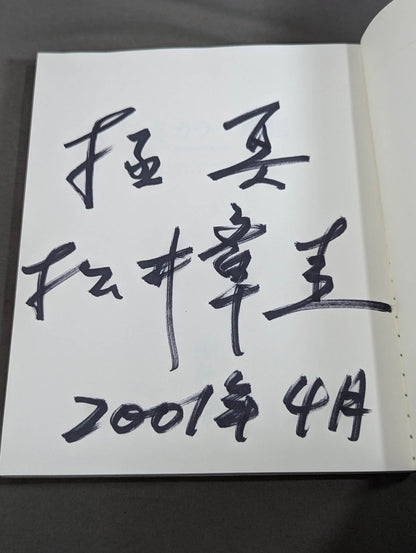 极真
松井章圭
2001年4月